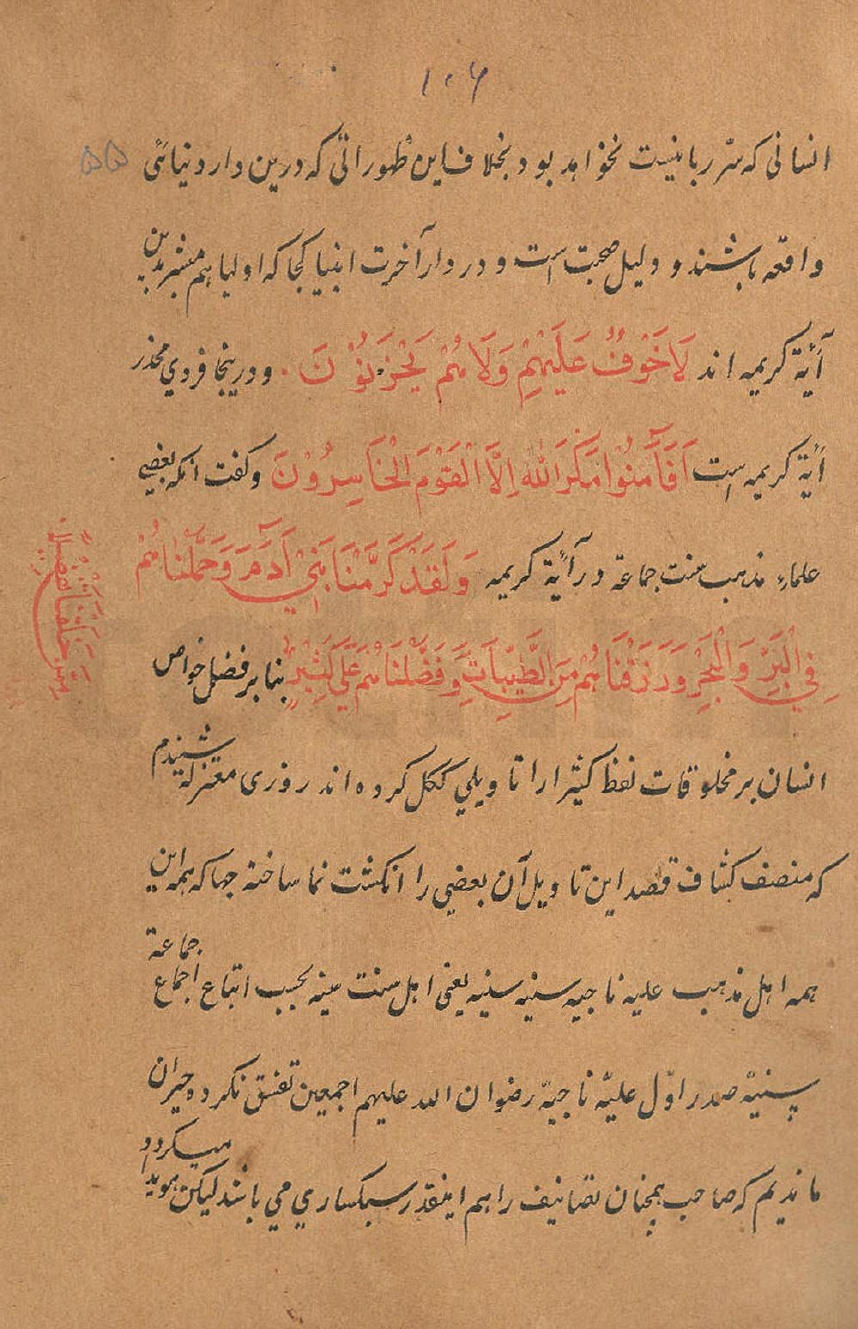 ۱۰۶
انسانی که سرّ ربانیست نخواهد بود بخلاف این ظهوراتی که درین دار دنیائی ۵۵
واقعه باشند و دلیل صحبت است و در دار آخرت انبیا کجا که اولیا هم مبشر بدین
آیة کریمه اند لَا خَوْفٌ عَلَيْهِمْ وَلَا هُمْ يَحْزَنُوْنَ . و درینجا فردي محذر
آیة کریمه است اَفَآَمِنُوا مَكْرَ اللّٰهِ اِلَّا الْقَوْمَ الْخَاسِرُوْنَ و گفت آنکه بعضي
علماء مذهب سنت جماعة در آیة کریمه وَلَقَدْ كَرَّمْنَا بَنِيْ اَدَمَ وَحَمَلْنَا هُمْ
فِي الْبَرِّ وَالْبَحْرِ وَرَزَقْنَا هُمْ مِنَ الطَّيِّبَاتِ وَفَضَّلْنَا هُمْ عَلٰي كَثِيْرٍ بنا بر فضل خواص
مِمَّنْ خَلَقْنَا تَفْضِيْلًا
انسان بر مخلوقات لفظ کثیرا را تاویلي بکل کرده اند روزی معتزله شنیدم
که منصف کشاف قصد این تاویل آن بعضي را انگشت نما ساخته جها که همه این
همه اهل مذهب علیه ناجیه سنیه سنیه یعنی اهل سنت سنیه بحسب اتباع اجماع جماعة
سنیّه صدر اوّل علیّه ناجیه رضوان الله علیهم اجمعین تفسق نکرده حیران
ماندیم که صاحب همچنان تصانیف را هم اینقدر سبکساري مي باشد لیکن هویدا میکردد